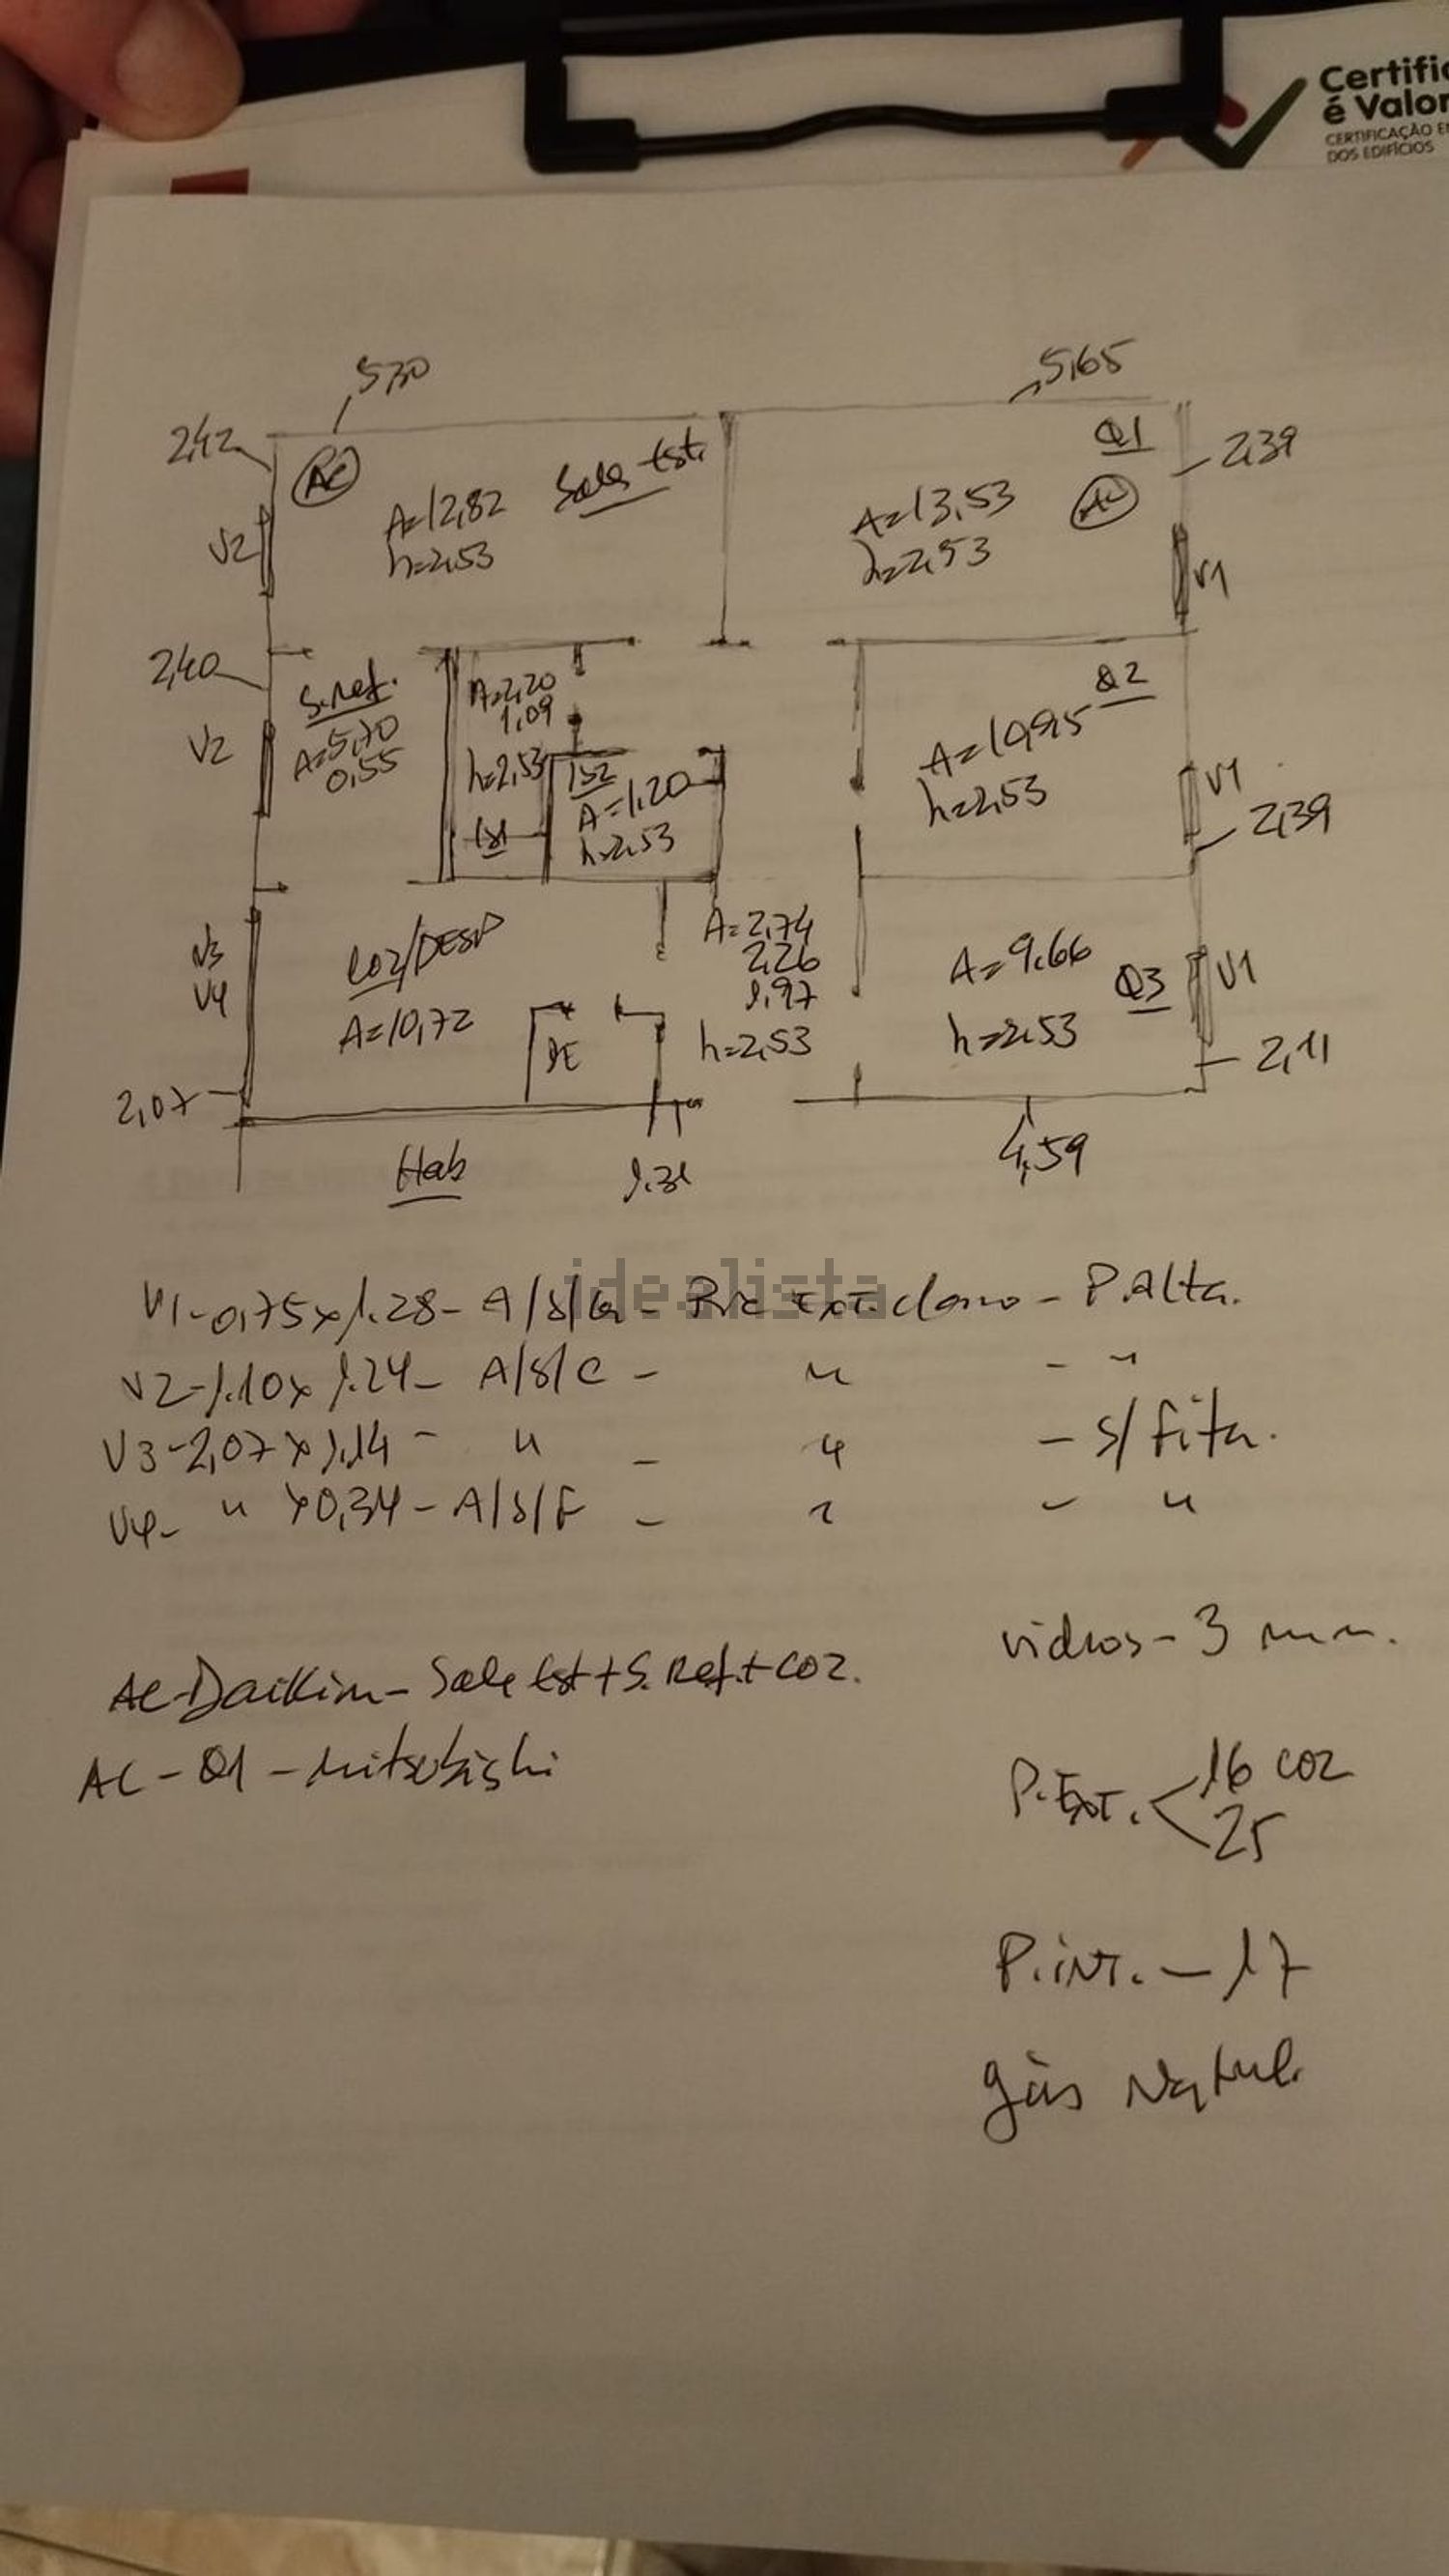 Certific
é Valor
CERTIFICAÇÃO EN
DOS EDIFÍCIOS
5,30
5,65
2,42
AC
Sala Est.
Q1
2,39
A=12,82
h=2,53
A=13,53
h=2,53
AC
V2
V1
2,40
S.Ref.
A=5,70
0,55
V2
A=2,20
1,09
h=2,53
IS1
IS2
A=1,20
h=2,53
Q2
A=10,95
h=2,53
V1
2,39
V3
V4
COZ/DESP
A=10,72
A=2,74
2,26
1,97
h=2,53
A=9,66
h=2,53
Q3
V1
2,11
2,07
Hab
1.31
4,59
idealista
V1-0,75x1.28- A/S/G - Ext. claro - P.Alta.
V2-1.10x1.24- A/S/C - " - "
V3-2,07x1,14 - " - " - s/fita.
V4- " x0,34-A/S/F - " - "
vidros - 3 mm.
AC-Daikin-Sala Est+S.Ref.+COZ.
AC-Q1-Mitsubishi
P.Ext. < 16 COZ
25
P.int. - 17
gás Natural.